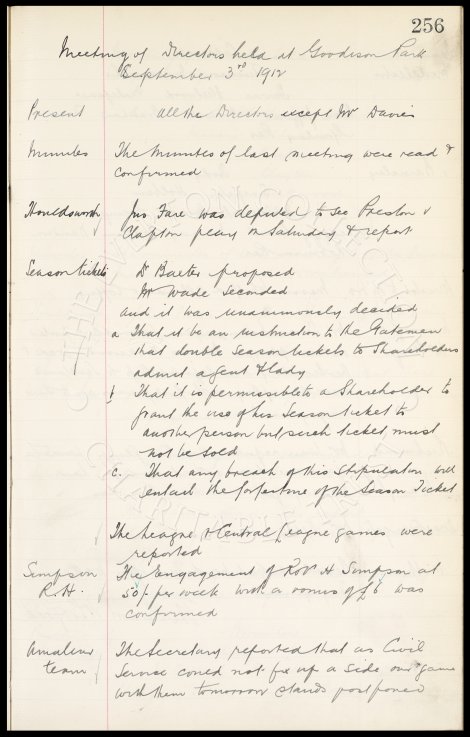 256
Meeting of Directors held at Goodison Park
September 3rd 1912
Present all the Directors except Mr Davies
Minutes The Minutes of last meeting were read &
confirmed
Houldsworth Jno Fare was deputed to see Preston v
Clapton play on Saturday & report
Season tickets Dr Baxter proposed
Mr Wade seconded
and it was unanimously decided
a That it be an instruction to the Gatemen
that double Season tickets to Shareholders
admit a gent & lady
b That it is permissible to a Shareholder to
grant the use of his Season ticket to
another person but such ticket must
not be sold
c. That any breach of this Stipulation will
entail the forfeiture of the Season Ticket
The League & Central League games were
reported
Simpson The engagement of Robt H Simpson at
R.H. 50/- per week with a bonus of £5 was
confirmed
Amateur The Secretary reported that as Civil
team Service could not fix up a side our game
with them tomorrow stands postponed